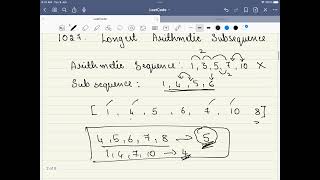 LeetCode
1027. Longest Arithmetic Subsequence
2
Arithmetic Sequence : 1, 3, 5, 7, 10 X
2
Sub sequence : 1, 4, 5, 6
[ 1, 4, 5, 6, 7, 10 8]
4, 5, 6, 7, 8 → 5
1, 4, 7, 10 → 4